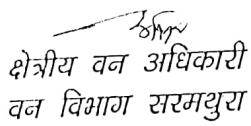 क्षेत्रीय वन अधिकारी
वन विभाग सरमथुरा